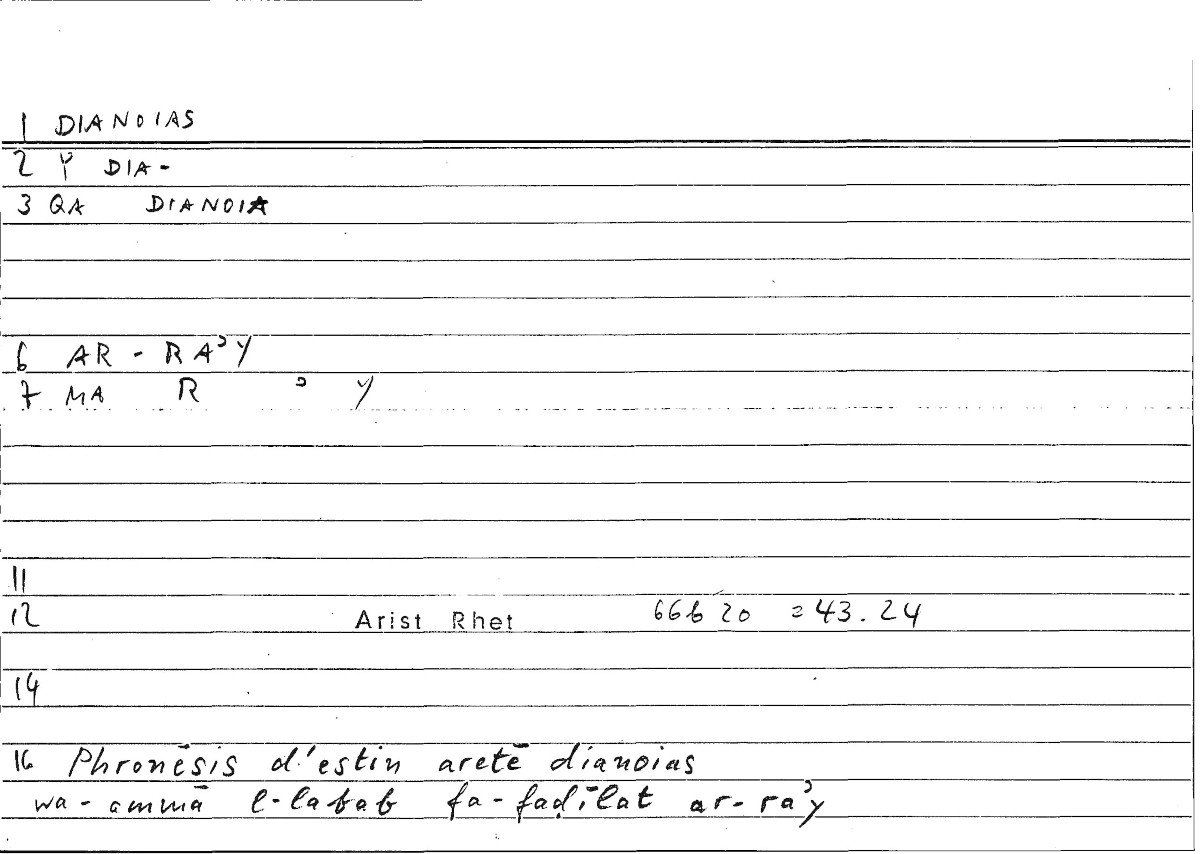 1 DIANOIAS
2 Ϙ DIA-
3 QA DIANOIA
6 AR - RAʾY
7 MA R ʾ Y
11
12 Arist Rhet 66b20 = 43.24
14
16 Phronēsis d'estin aretē dianoias
wa-ammā l-labab fa-faḍīlat ar-raʾy